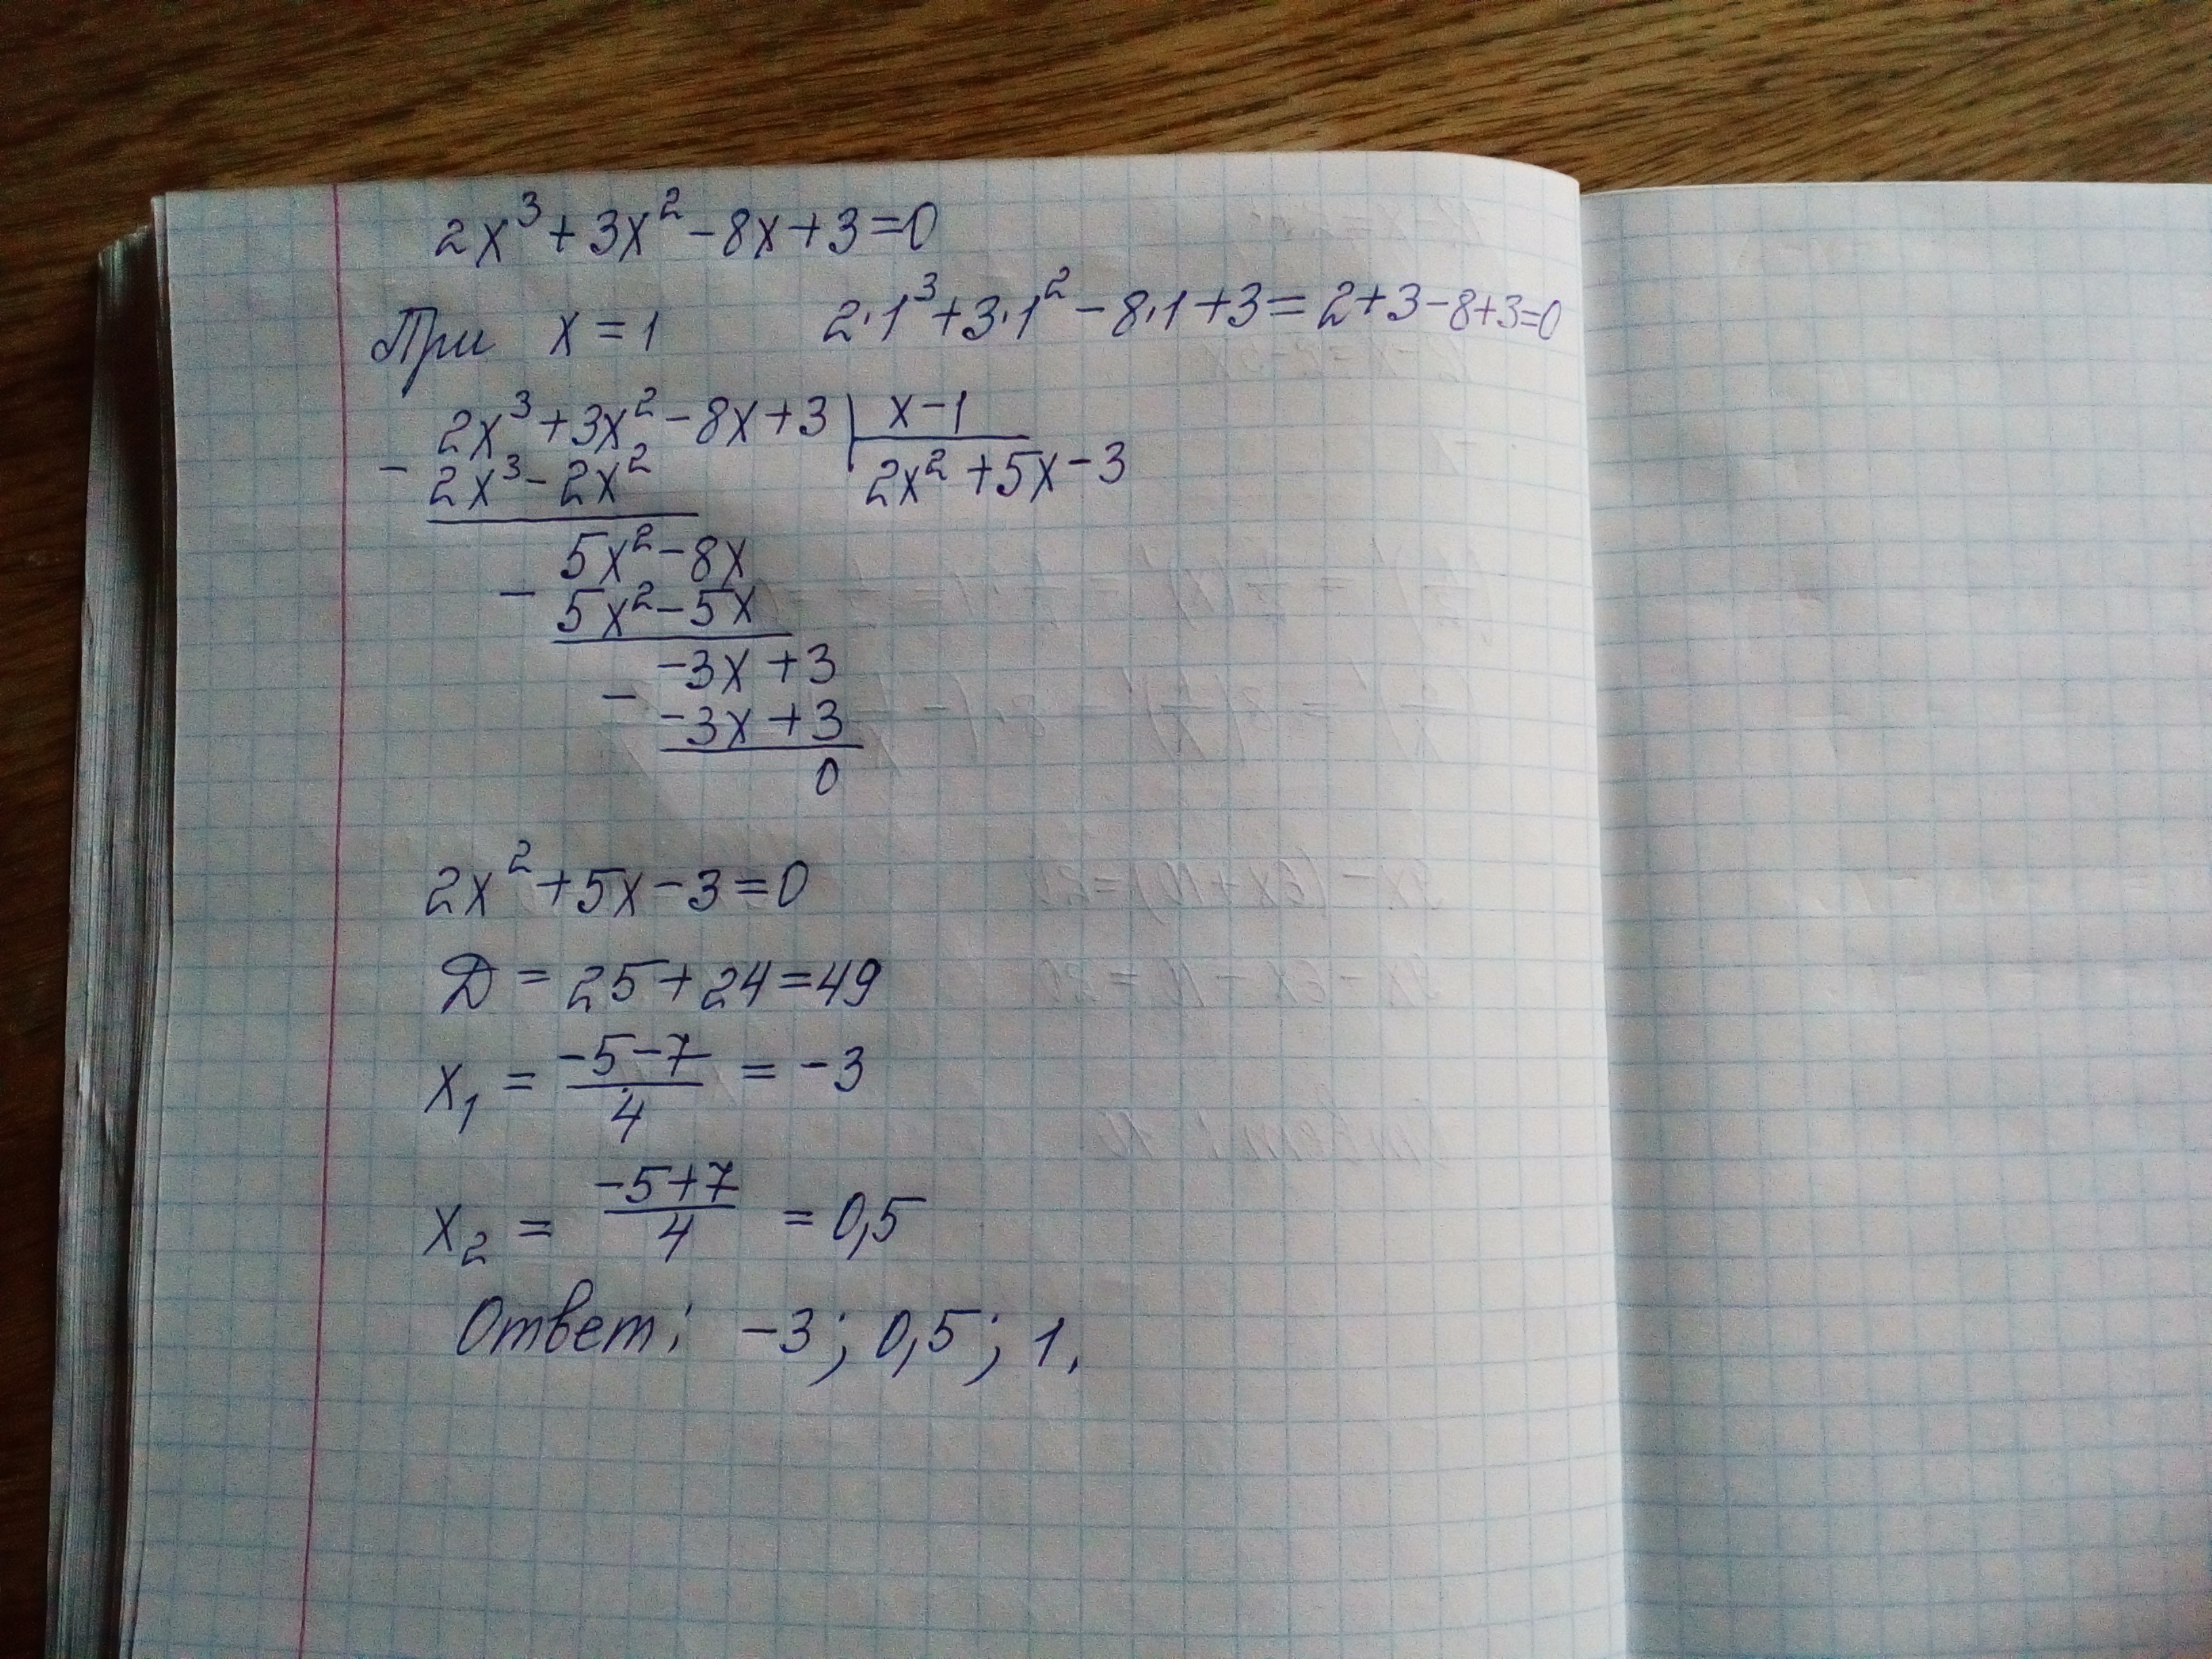 2x³+3x²-8x+3=0
При x=1 2·1³+3·1²-8·1+3=2+3-8+3=0
2x³+3x²-8x+3 | x-1
- 2x³-2x² 2x²+5x-3
5x²-8x
- 5x²-5x
-3x+3
- -3x+3
0
2x²+5x-3=0
Д=25+24=49
x₁ = (-5-7)/4 = -3
x₂ = (-5+7)/4 = 0,5
Ответ: -3; 0,5; 1.